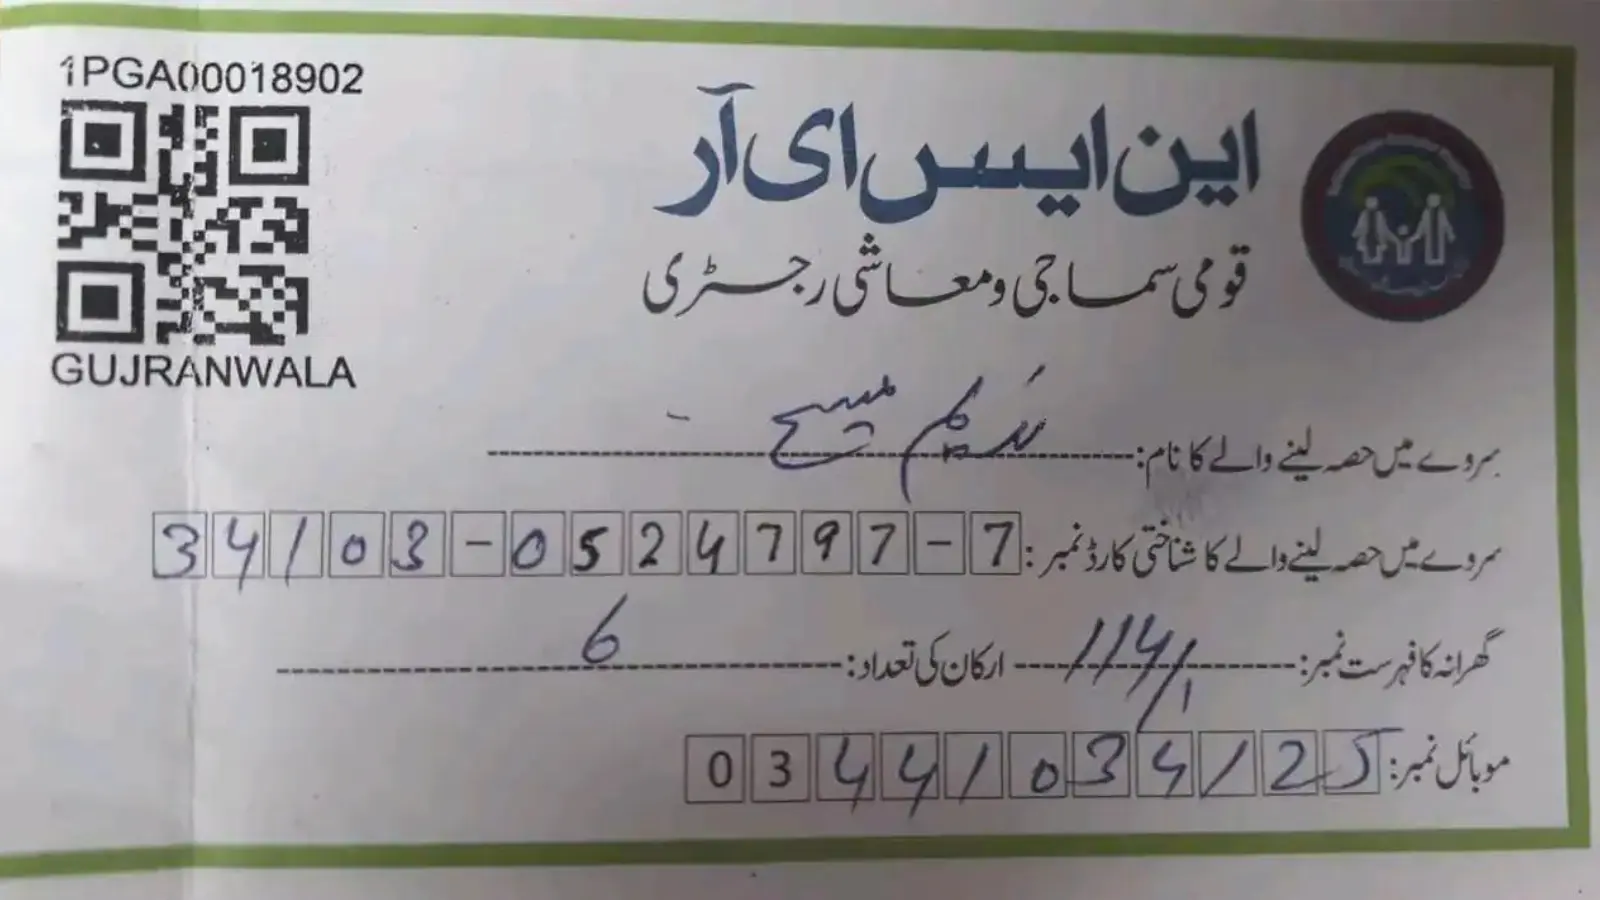 1PGA00018902
GUJRANWALA
این ایس ای آر
قومی سماجی و معاشی رجسٹری
سروے میں حصہ لینے والے کا نام: مسیح
سروے میں حصہ لینے والے کا شناختی کارڈ نمبر: 34103-0524797-7
گھرانہ کا فہرست نمبر: 114/1 ارکان کی تعداد: 6
موبائل نمبر: 03441034125